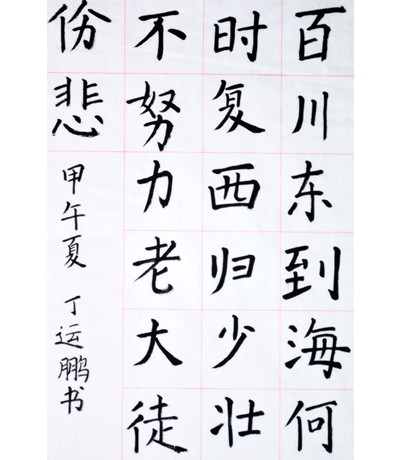 百川东到海何
时复西归少壮
不努力老大徒
份悲
甲午夏 丁运鹏书